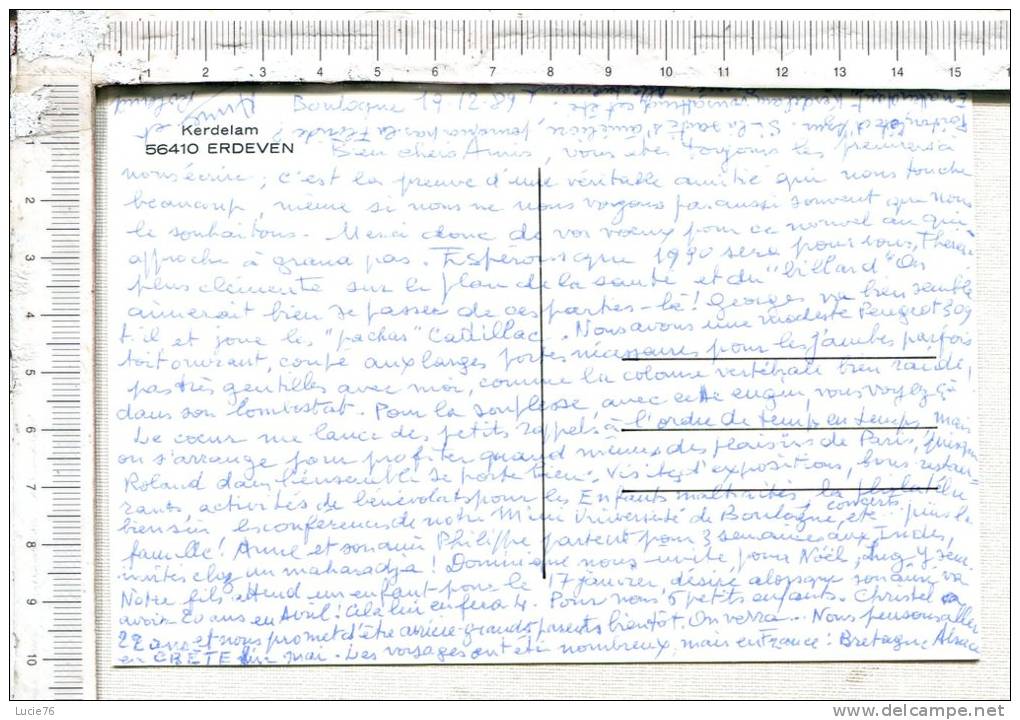 Boulogne 19.12.89
Kerdelam
56410 ERDEVEN
Bien chers Amis, vous êtes toujours les premiers à
nous écrire; c'est la preuve d'une véritable amitié qui nous touche
beaucoup, même si nous ne nous voyons pas aussi souvent que nous
le souhaitons. Merci donc de vos voeux pour ce nouvel an qui
approche à grand pas. Espérons que 1990 sera pour vous,
plus clémente sur le plan de la santé et du "billard" On
aimerait bien se passer de ces parties-là! Georges va bien semble
t-il et joue les "pachas" Cadillac. Nous avons une modeste Peugeot 309
toit ouvrant, coupé aux larges portes nécessaires pour les jambes parfois
pas très gentilles avec moi, comme la colonne vertébrale bien raidie,
dans son lombostat. Pour la souplesse, avec cet engin, vous voyez çà
Le coeur me lance des petits rappels à l'ordre de temps en temps, mais
on s'arrange pour profiter quand même des plaisirs de Paris, puisque
Roland dans l'ensemble se porte bien. Visites d'expositions, bons restau-
rants activités de bénévolats pour les Enfants maltraités, la
concerts
bien sûr les conférences de notre Mini Université de Boulogne, etc. puis la
famille! Anne et son ami Philippe partent pour 3 semaines aux Indes,
invités chez un maharadja! Dominique nous invite, pour Noël,
Notre fils attend un enfant pour le 17 janvier, désiré
avoir 20 ans en Avril! Cela lui en fera 4. Pour nous 5 petits enfants. Christel a
22 ans et nous promet d'être arrière-grands parents bientôt. On verra.. Nous pensons aller
en CRETE fin mai. Les voyages ont été nombreux, mais en France: Bretagne, Alsace
1 2 3 4 5 6 7 8 9 10 11 12 13 14 15
2
3
4
5
6
7
8
9
10
Lucie76
www.delcampe.net